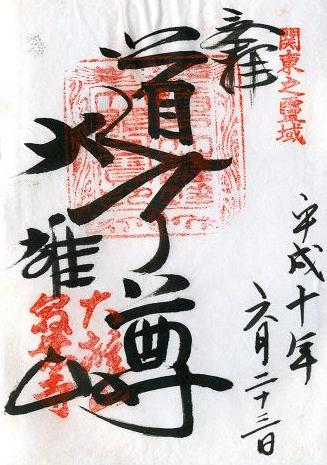 関東之霊域
奉拝
道了尊
大雄山
平成十年
六月二十三日
大雄山
最乗寺